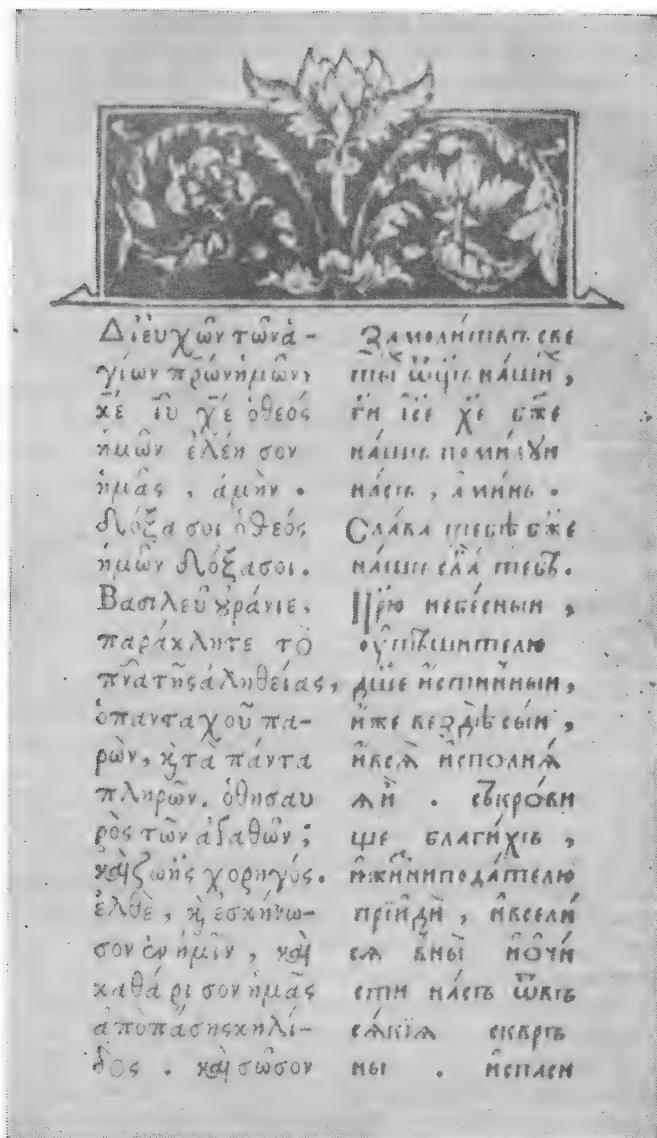 Διευχῶν τῶν ἁ-
γίων πρ͂ων ἡμῶν,
κ͂ε ἶυ χ͂ε ὁ θεός
ἡμῶν ἐλέησον
ἡμᾶς , ἀμὴν .
Δόξα σοι ὁ θεός
ἡμῶν δόξα σοι.
Βασιλεῦ ȣράνιε,
παράκλητε τὸ
πν͂α τῆς ἀληθείας,
ὁ πανταχοῦ πα-
ρὼν, κ̀ τὰ πάντα
πληρῶν. ὁ θησαυ
ρὸς τῶν ἀγαθῶν ;
καὶ ζωῆς χορηγός.
ἐλθὲ , κ̀ ἐσκήνω-
σον ἐν ἡμῖν , καὶ
καθάρισον ἡμᾶς
ἀπὸ πάσης κηλῖ-
δος . καὶ σῶσον
За молитвъ све
ты ѿцъ на́ши ,
г҃и і҃се х҃е б҃же
на́шь поми́лꙋи
на́съ , а҆ми́нь .
Сла́ва тебѣ б҃же
на́шь сла́ тебѣ.
Ц҃рю небе́сныи ,
ѹ҆тѣ́шителю
д҃ше и҆́стинныи,
и҆́же везд̾ѣ сы́и ,
и҆ всѧ̀ и҆сполнѧ́
ѧ҆й . съкро́ви
ще благи́хъ ,
и҆ жи́зни пода́телю
прїиди̑ , и҆ всели́
сѧ в ны̀ и҆ ѡ҆чи́
сти на́съ ѿ въ
сѧ́кїѧ скъръ
ны . и҆ сп҃си